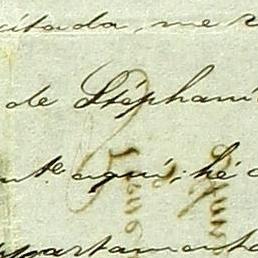 citada, me r
de Stéphani
nte aquí; hé
partamento